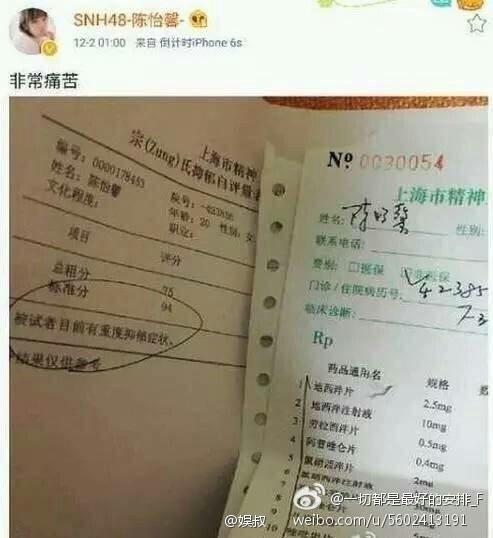 SNH48-陈怡馨-
12-2 01:00 来自 倒计时iPhone 6s
非常痛苦
上海市精神
宗(Zung)氏抑郁自评量表
编号: 0000178453
姓名: 陈怡馨
年龄: 20 性别: 女
文化程度:
职业:
项目 评分
总粗分 75
标准分 94
被试者目前有重度抑郁症状。
结果仅供参考
Nº 0030054
上海市精神
姓名: 陈怡馨 性别:
联系电话:
费别: 医保 非医保
门诊/住院病历号: 42385
临床诊断: 73
Rp
药品通用名 规格
1 地西泮片 2.5mg
2 地西泮注射液 10mg
3 劳拉西泮片 0.5mg
4 阿普唑仑片 0.4mg
5 氯硝西泮片 2mg
6 氯硝西泮注射液
@一切都是最好的安排_F
@娱叔
weibo.com/u/5602413191